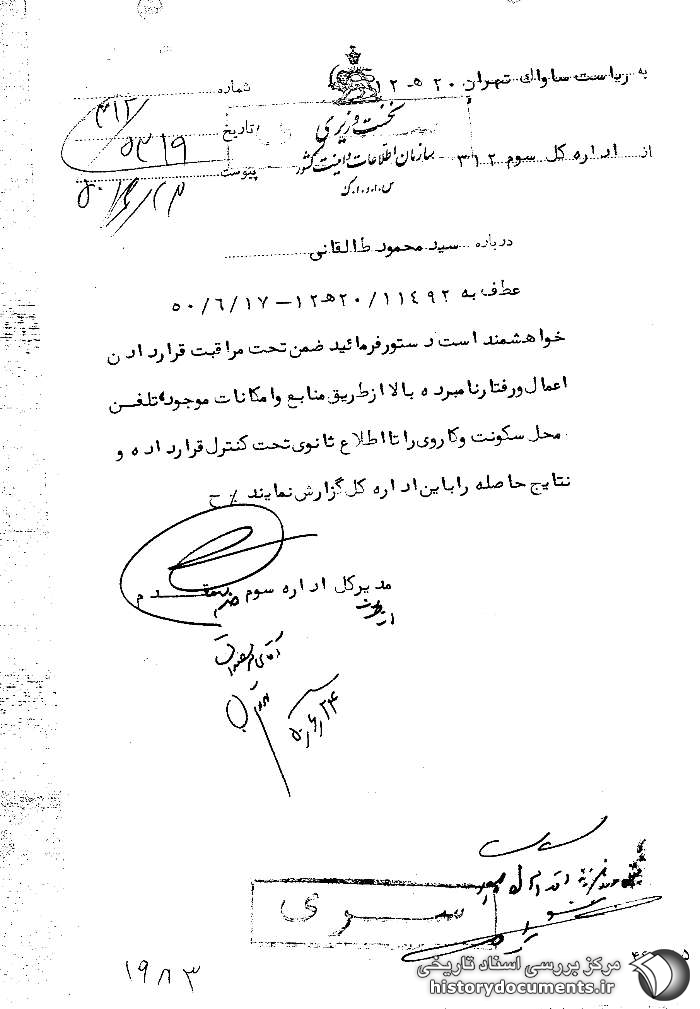 به ریاست ساواك تهران ۲۰ ه‍ ۱۲
شماره ۳۱۲/
نخست وزیری
تاریخ ۵۳۱۹
از اداره کل سوم ۳۱۲
سازمان اطلاعات و امنیت کشور
پیوست
س.ا.و.ا.ك
درباره سید محمود طالقانی
عطف به ۲۰/۱۱۴۹۲ ه‍ ۱۲ – ۵۰/۶/۱۷
خواهشمند است دستور فرمائید ضمن تحت مراقبت قرار دادن
اعمال و رفتار نامبرده بالا از طریق منابع و امکانات موجود، تلفن
محل سکونت و کار وی را تا اطلاع ثانوی تحت کنترل قرار داده و
نتایج حاصله را باین اداره کل گزارش نمایند ٪ ح
مدیر کل اداره سوم مقدم
۵۰/۶/۲۴
سری
۱۹۸۳
مرکز بررسی اسناد تاریخی
historydocuments.ir